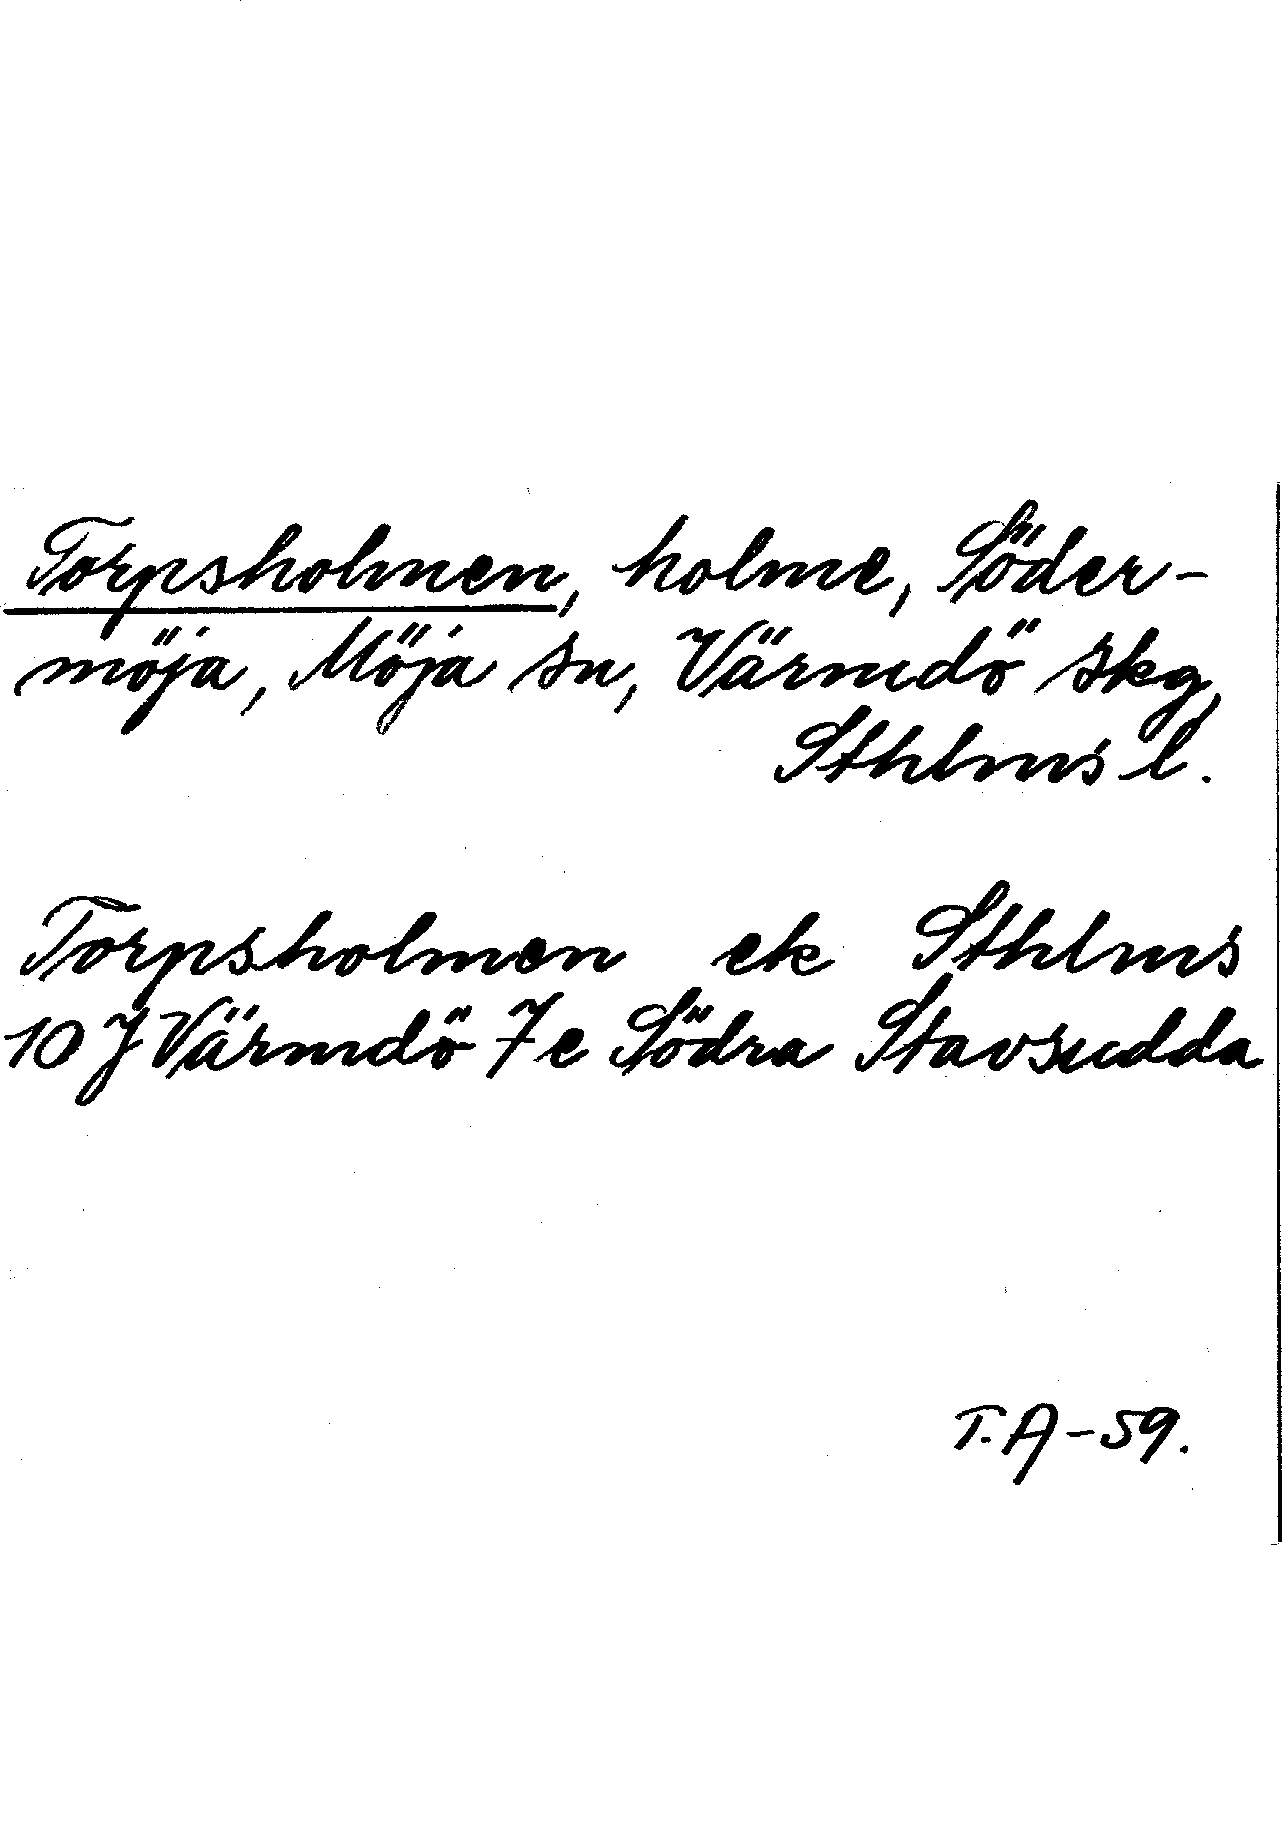 Torpsholmen, holme, Söder-
möja, Möja sn, Värmdö skg,
Sthlms l.
Torpsholmen ek Sthlms
10 J Värmdö 7e Södra Stavsudda
T.A-59.